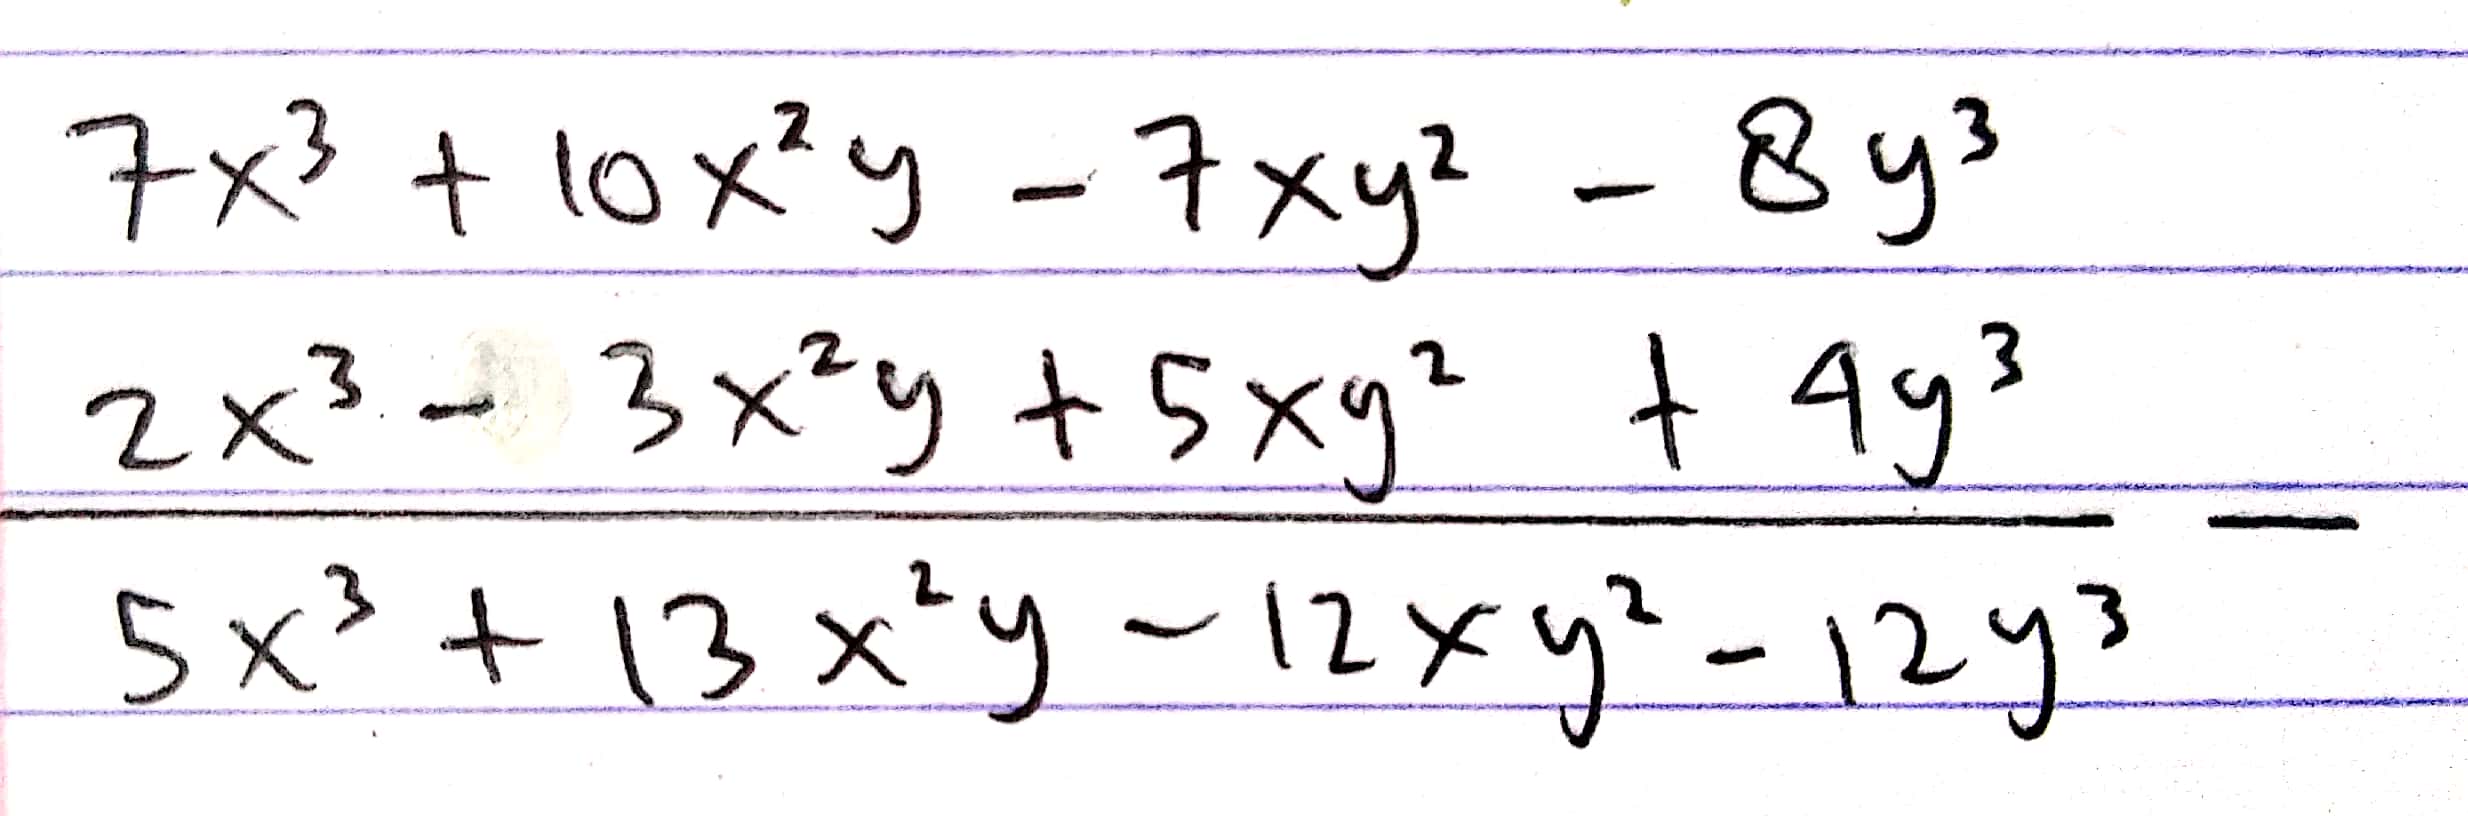 7x³ + 10x²y - 7xy² - 8y³
2x³ - 3x²y + 5xy² + 4y³
-
5x³ + 13x²y - 12xy² - 12y³